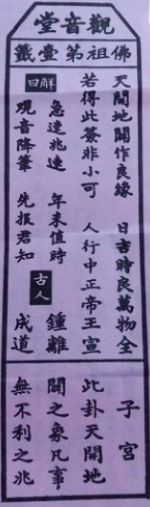 觀音堂
佛祖第壹籤
天開地闢作良緣
日吉時良萬物全
若得此簽非小可
人行中正帝王宣
解曰
急速兆速
年未值時
觀音降筆
先报君知
古人
鍾離
成道
子宮
此卦天開地
闢之象凡事
無不利之兆